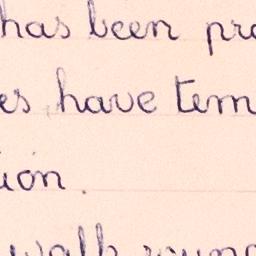 has been pro
es have tem
ion.
walk roun